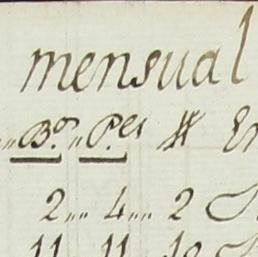 mensual
B.os P.es #
2 ... 4 ... 2
11 11 10